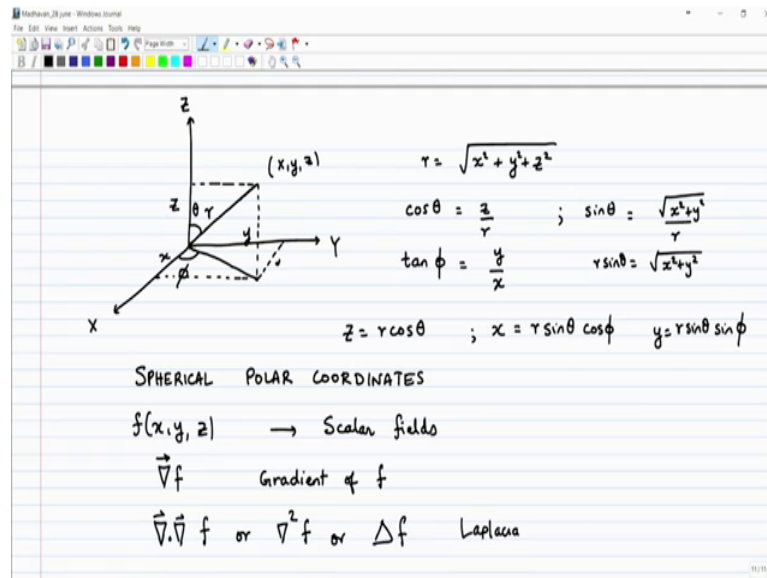 Madhavan_28 june - Windows Journal
File Edit View Insert Actions Tools Help
Page Width
B I
Z
(x, y, z)
z θ r
y
Y
x
φ
X
r = √(x² + y² + z²)
cosθ = z/r ; sinθ = √(x²+y²)/r
tan φ = y/x r sinθ = √(x²+y²)
z = r cosθ ; x = r sinθ cosφ y = r sinθ sin φ
SPHERICAL POLAR COORDINATES
f(x, y, z) → Scalar fields
∇⃗f Gradient of f
∇⃗.∇⃗ f or ∇²f or Δf Laplacia
11/11